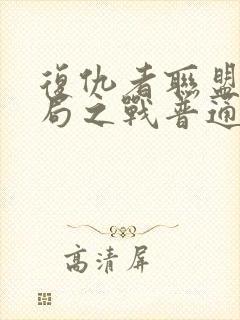 復仇者聯盟
局之戰普通
高清屏